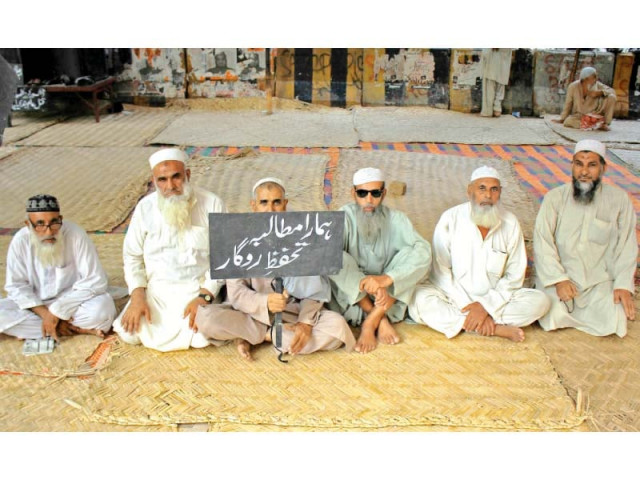 ہمارا مطالبہ
تحفظ روزگار